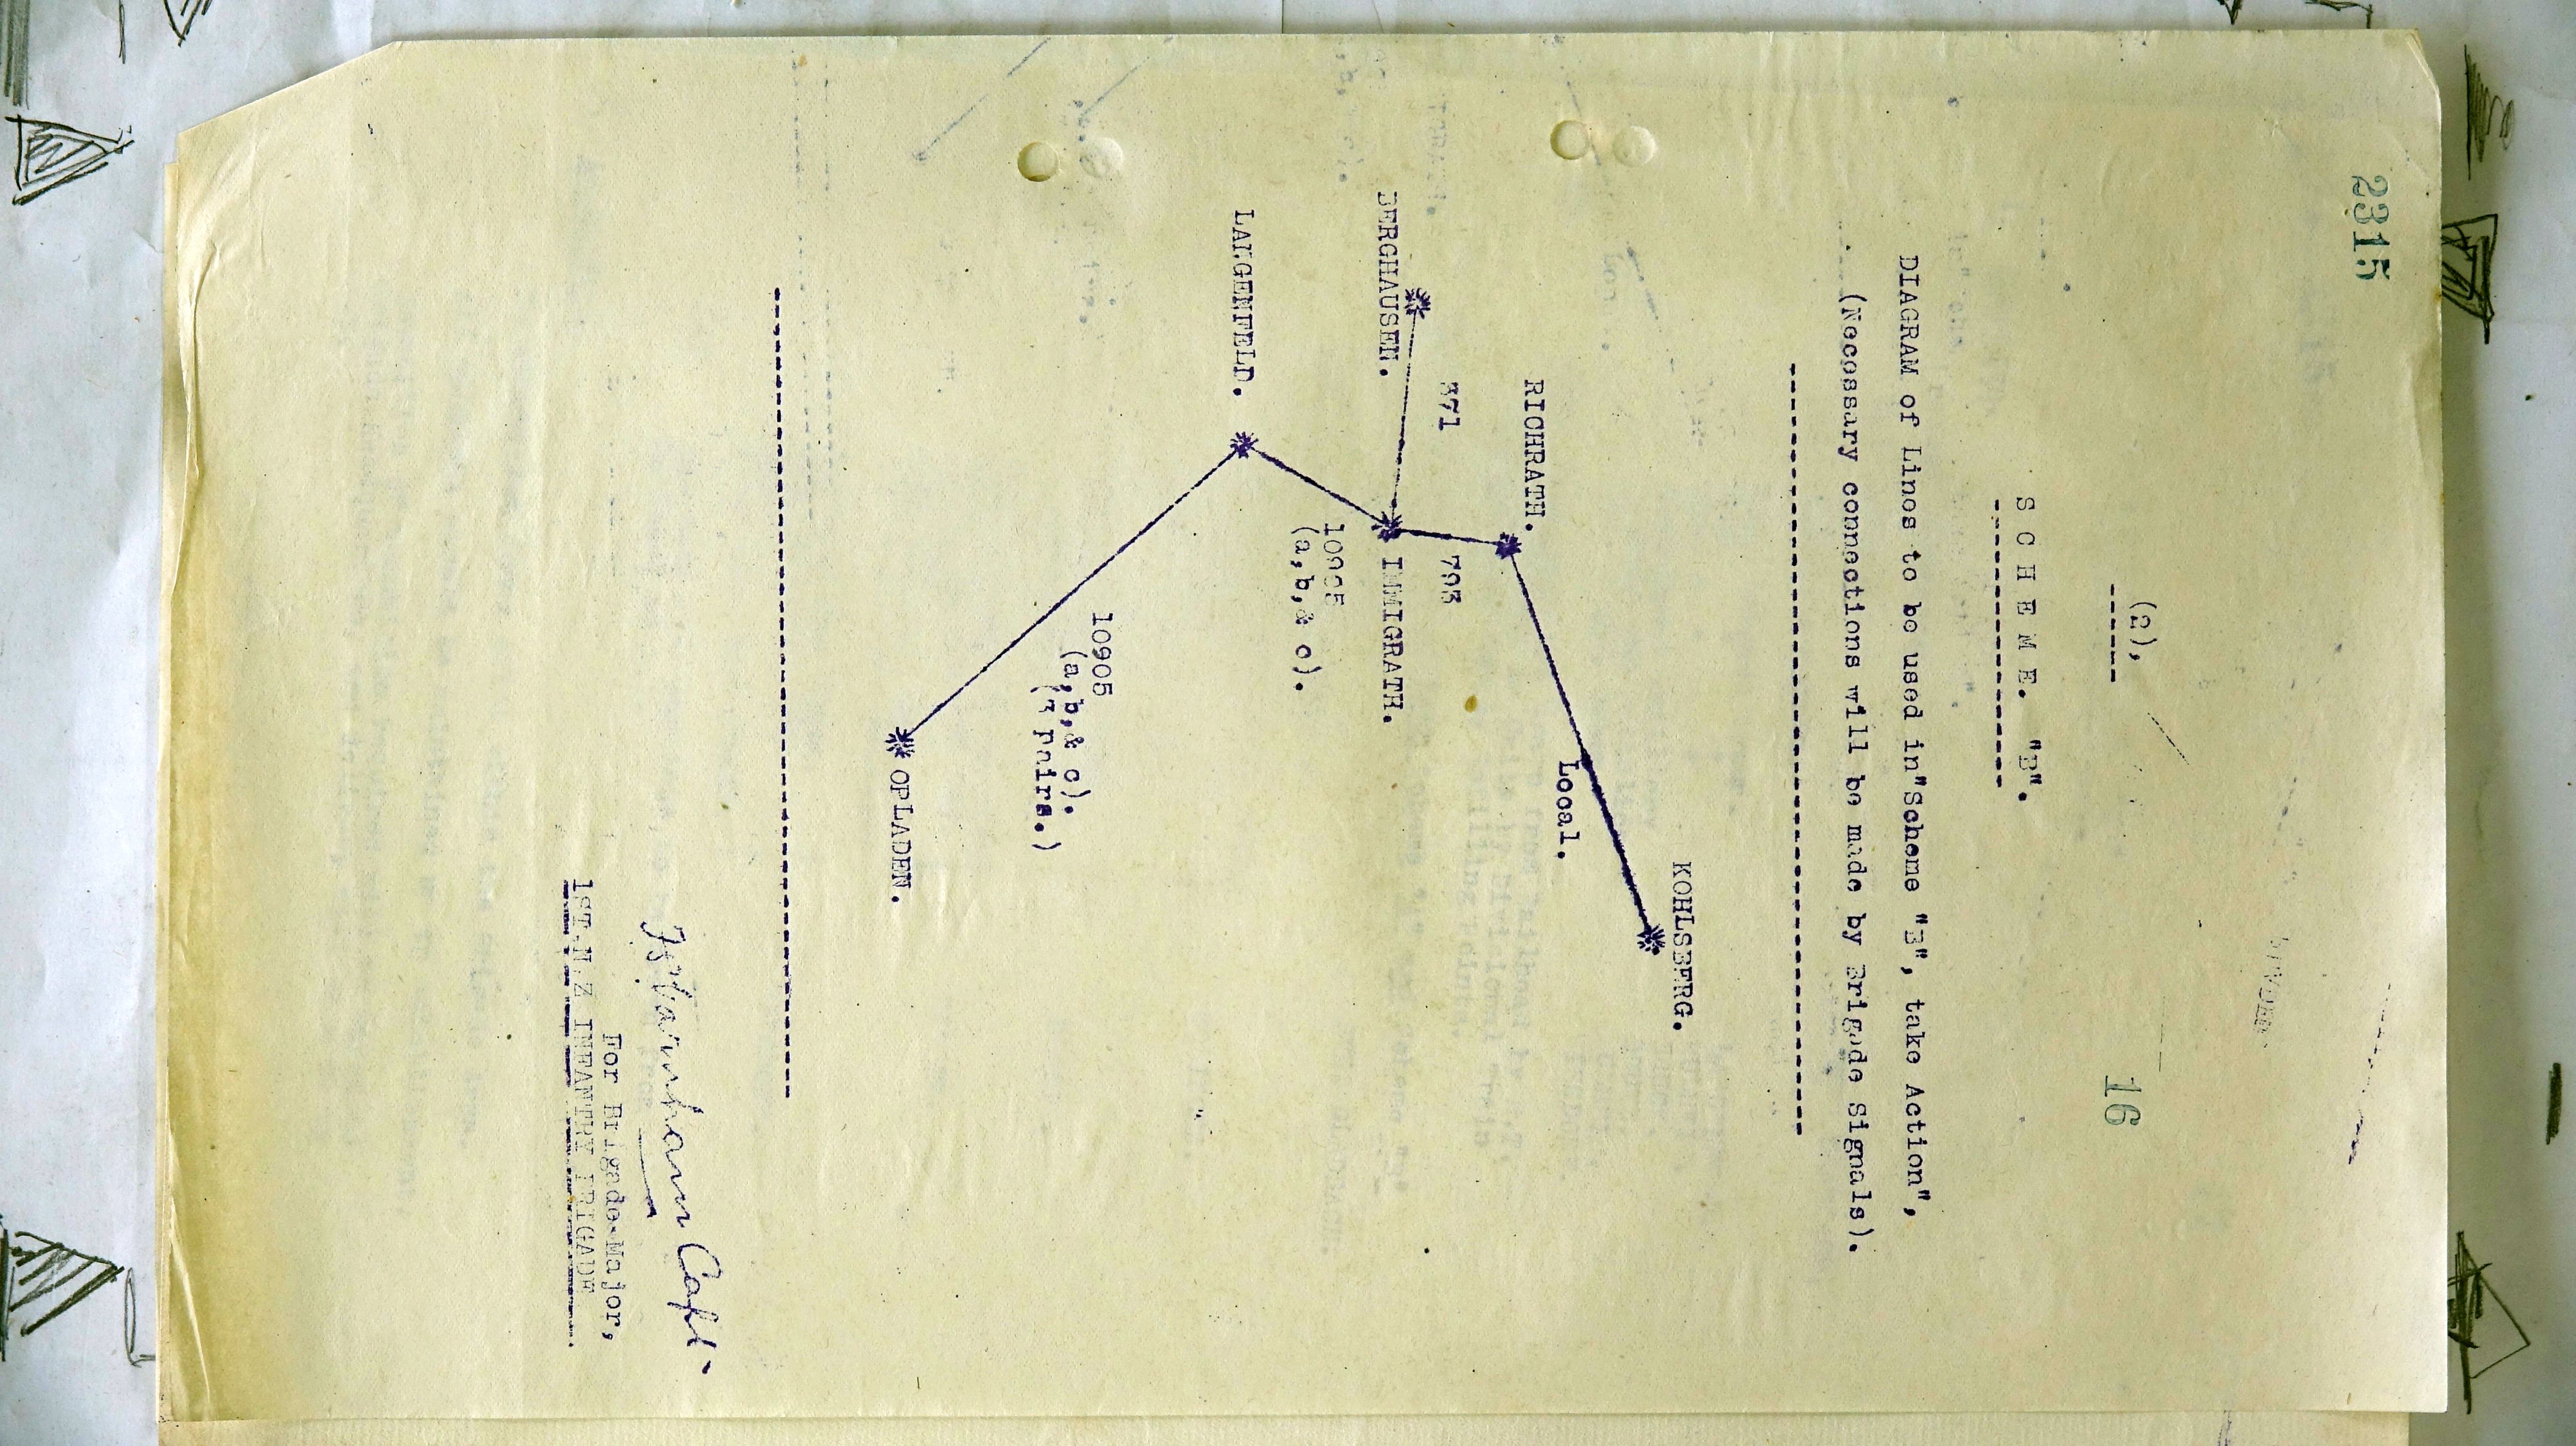 2315
(2),
16
S C H E M E. "B".
DIAGRAM of Lines to be used in"Scheme "B", take Action",
(Necessary connections will be made by Brigade Signals).
KOHLSBERG.
RICHRATH.
Local.
371
703
BERGHAUSEN.
IMMIGRATH.
10905
(a,b,& c).
LANGENFELD.
10905
(a,b,& c).
(3 pairs.)
OPLADEN.
Capt.
For Brigade-Major,
1ST.N.Z INFANTRY BRIGADE